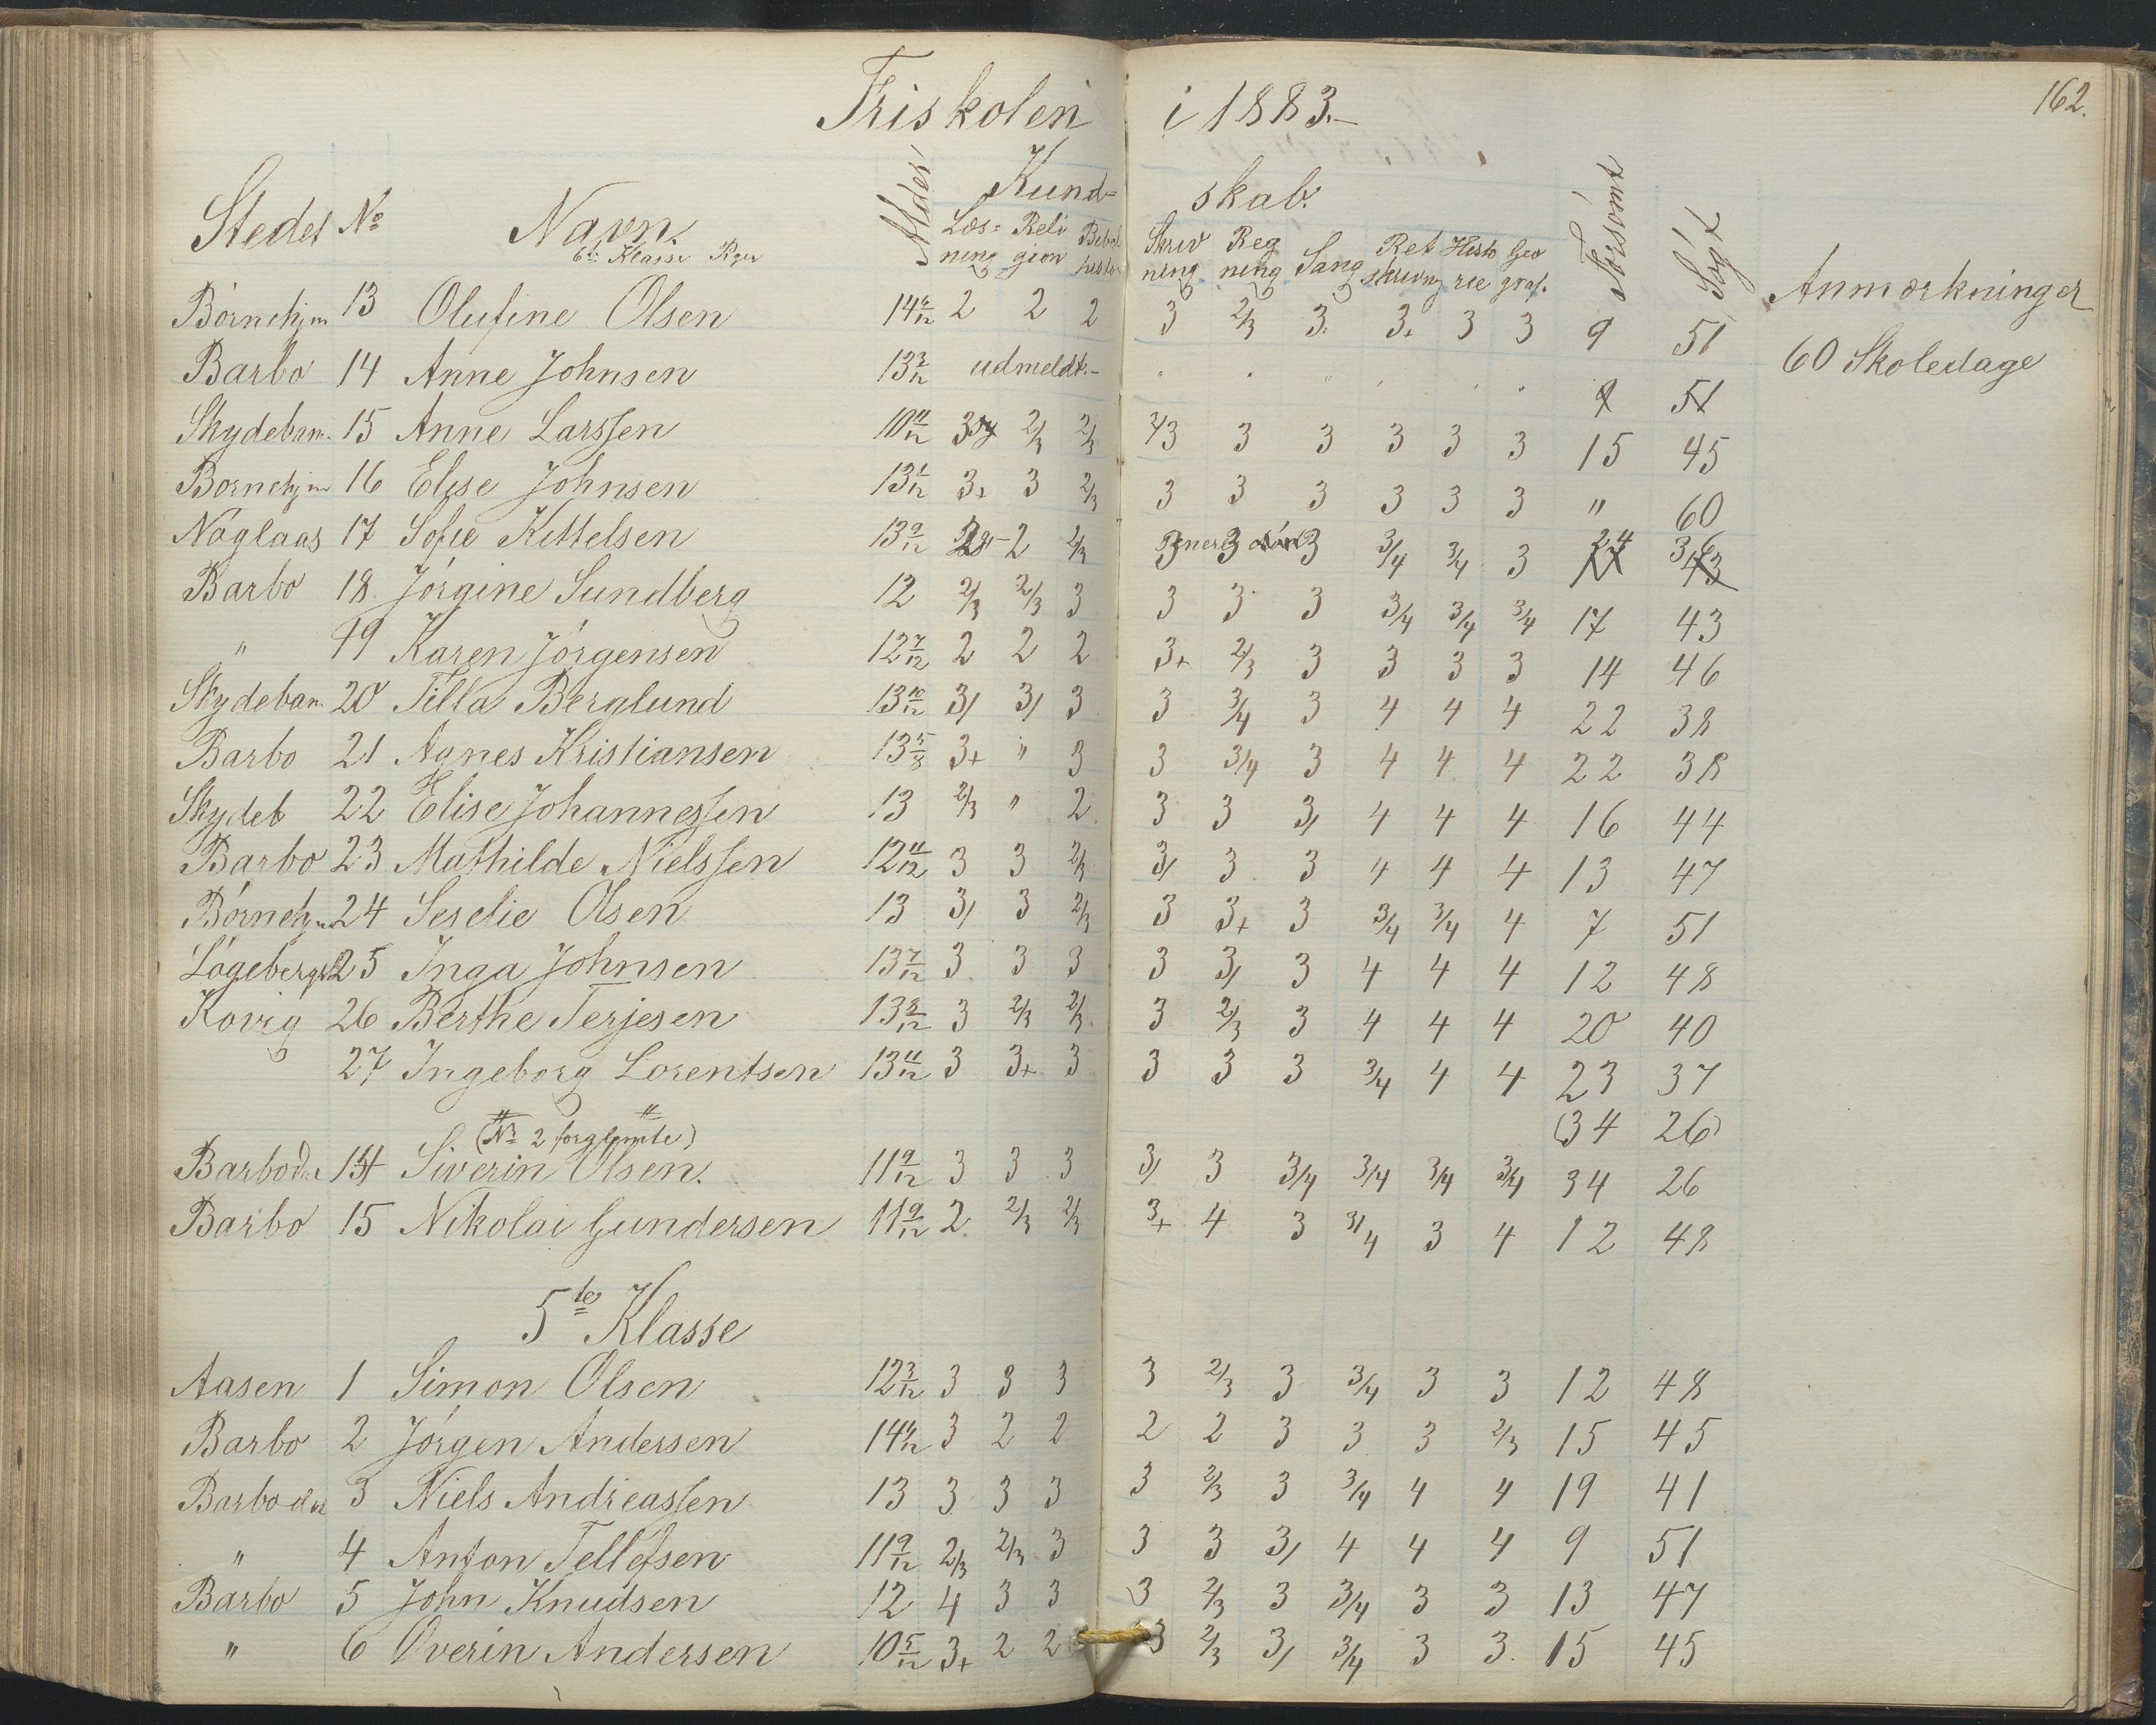 162.
Friskolen i 1883.-
Kund= skab.
Stedet No Navn. Alder Læs=ning Religion Bibelhistor Skrivning Regning Sang Retskrivng Historie Geograf. Forsömt Sögt Anmærkninger
6te Klasse Piger
Börnehjm 13 Olufine Olsen 14 2 2 2 3 2/3 3. 3+ 3 3 9 51 60 Skoledage
Barbo 14 Anne Johnsen 13 3/12 udmeldt.- 9 51
Skydeban. 15 Anne Larssen 10 11/12 3 2/3 2/3 2/3 3 3 3 3 3 15 45
Börnehjm 16 Elise Johnsen 13 1/12 3+ 3 2/3 3 3 3 3 3 3 " 60
Nöglaas 17 Sofie Kittelsen 13 9/12 2 2/3 3 3 3 3/4 3/4 3 24 36
Barbo 18. Jörgine Sundberg 12 2/3 2/3 3 3 3 3 3/4 3/4 3/4 17 43
" 19 Karen Jörgensen 12 7/12 2 2 2 3+ 2/3 3 3 3 3 14 46
Skydeban. 20 Tilla Berglund 13 10/12 3/ 3/ 3 3 3/4 3 4 4 4 22 38
Barbo 21 Agnes Kristiansen 13 3+ " 3 3 3/4 3 4 4 4 22 38
Skydeb 22 Elise Johannessen 13 2/3 " 2 3 3 3/ 4 4 4 16 44
Barbo 23 Mathilde Nielssen 12 11/12 3 3 2/3 3/ 3 3 4 4 4 13 47
Börnehjm 24 Seselie Olsen 13 3/ 3 2/3 3 3+ 3 3/4 3/4 4 7 51
Lögebergsk 25 Inga Johnsen 13 7/12 3 3 3 3 3/ 3 4 4 4 12 48
Kovig 26 Berthe Terjesen 13 8/12 3 2/3 2/3 3 2/3 3 4 4 4 20 40
27 Ingeborg Lorentsen 13 11/12 3 3+ 3 3 3 3 3/4 4 4 23 37
(No 2 forglemte) (34 26)
Barbodal 14 Siverin Olsen. 11 9/12 3 3 3 3/ 3 3/4 3/4 3/4 3/4 34 26
Barbo 15 Nikolai Gundersen 11 9/12 2 2/3 2/3 3+ 4 3 3/4 3 4 12 48
5te Klasse
Aasen 1 Simon Olsen 12 3/12 3 3 3 3 2/3 3 3/4 3 3 12 48
Barbo 2 Jörgen Andersen 14 3 2 2 2 2 3 3 3 2/3 15 45
Barbodal 3 Niels Andreassen 13 3 3 3 3 2/3 3 3/4 4 4 19 41
" 4 Anton Tellefsen 11 9/12 2/3 2/3 3 3 3 3/ 4 4 4 9 51
Barbo 5 John Knudsen 12 4 3 3 3 2/3 3 3/4 3 3 13 47
" 6 Overin Andersen 10 5/12 3+ 2 2 3 2/3 3/ 3/4 3 3. 15 45